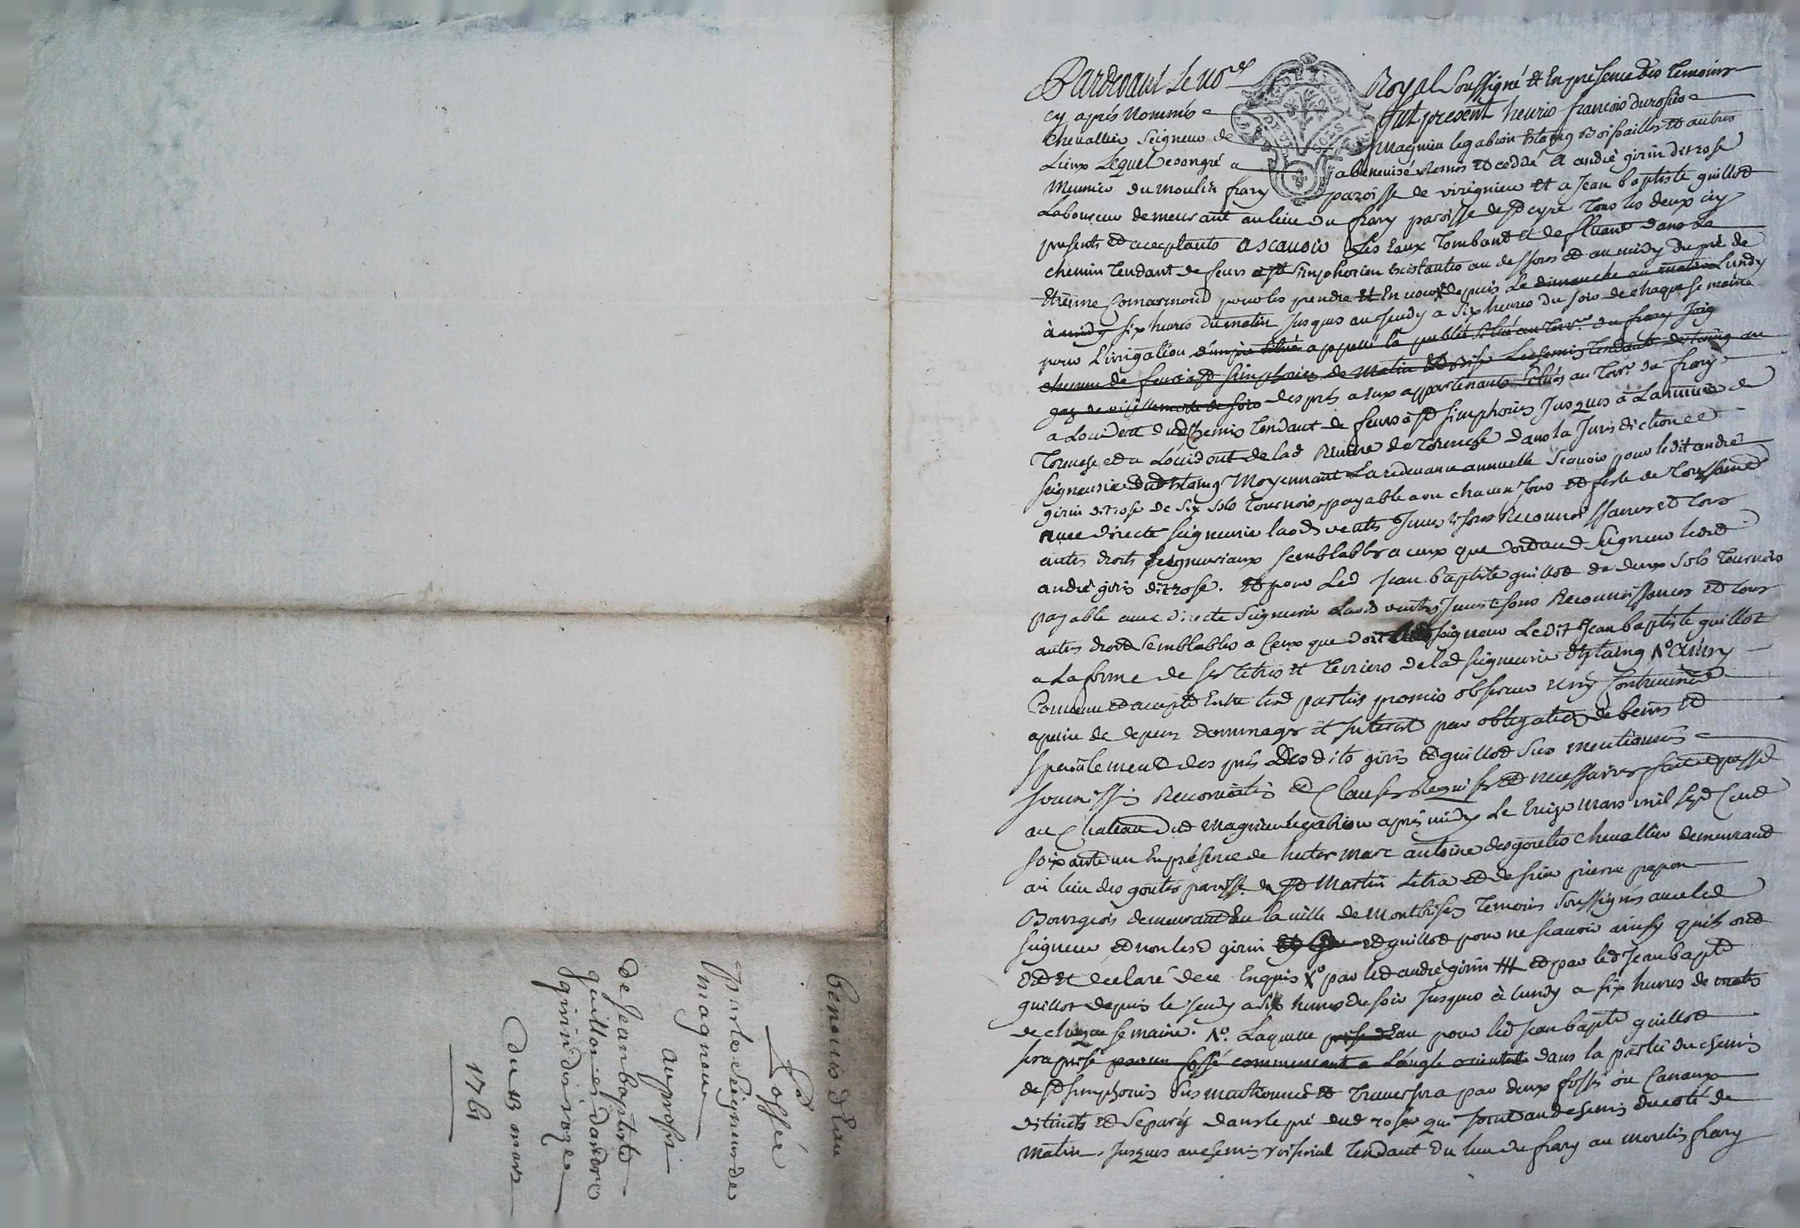 Pardevant le no.re Royal soussigné et En présence des temoins
cy aprés Nommés fut présent henrio françois durosier
Chevallier Seigneur de Magnieu legabion Estaing Boissailles et autres
Lieux Lequel de son gré a abenevisé Remis et ceddé A andré girin dit rose
Meunier du moulin frary paroisse de virignieu et a Jean baptiste guillot
Laboureur demeurant au lieu du frary paroisse de st cyre tous les deux icy
presents et acceptants ascavoir Les Eaux tombant et defluant dans le
chemin tendant de feurs a st Simphorien Existantes au dessous et au midy du pré de
Etienne Comarmond pour les prendre et En user depuis Le dimanche au matin Lundy
à midy six heures du matin Jusques au Jeudy a six heures du soir de chaque semaine
pour L'irrigation d'un pré situé appellé la situé au terr.re du frary Joig
chemin de feurs a st Simphorien de matin et bise Le chemin tendant au
de soir des prés a eux appartenants situés au terr.re du frary
a Loccident dud Chemin tendant de feurs à st Simphorien Jusques à La riviere de
toranche et a Loccident de lad Riviere de toranche dans la Jurisdiction et
Seigneurie dud Estaing Moyennant La redevance annuelle scavoir pour ledit andré
girin dit rose de six sols tournois payable avec chacun Jour et feste de toussaint
avec directe Seigneurie laods ventes Reconnoissances et tous
autres droits seigneuriaux semblables a ceux que doit aud Seigneur ledit
andré girin dit rose. et pour Led Jean baptiste guillot de deux sols tournois
payable avec directe Seigneurie Laods ventes Reconnoissances et tous
autres droits semblables a Ceux que doit aud Seigneur Ledit Jean baptiste guillot
a La forme de ses titres et terriers de lad Seigneurie d'Estaing No. ainsy
Convenu et accepté Entre lesd parties promis observer
a peine de depens dommages et Interest par obligation de biens et
specialement des prés Desdits girin et guillot sus mentionnés
soumissions Renonciations et Clauses Requises et necessaires fait et passé
au Chateau dud Magnieu legabion aprés midy Le treize mars mil sept Cent
soixante un En présence de Marc antoine desgouttes chevallier demeurant
au lieu des gouttes paroisse de st Martin Letra et de sieur pierre papon
Bourgeois demeurant En la ville de Montbrison temoins soussignés avec led
Seigneur et non lesd girin et guillot pour ne scavoir ainsy quils ont
dit et declaré de ce Enquis Xo par led andré girin et par led Jean bapte
guillot depuis le Jeudy a six heures du soir Jusques à Lundy a six heures de matin
de chaque semaine. No. Laquelle prise d'Eau pour led Jean bapte guillot
sera prise par un fossé commencant a L'angle oriental dans la partie du chemin
de st Simphorien sus mentionné et traversera par deux fossés ou Canaux
distincts et separés dans le pré dud rose qui Joint aud chemin du coté de
matin. Jusques au chemin vicinal tendant du lieu du frary au moulin frary
benevis d'Eau
Passée
par le Seigneur de
magnieu
au proffit
de Jean baptiste
guillot et d'andré
girin dit roze
du 13 mars
1761